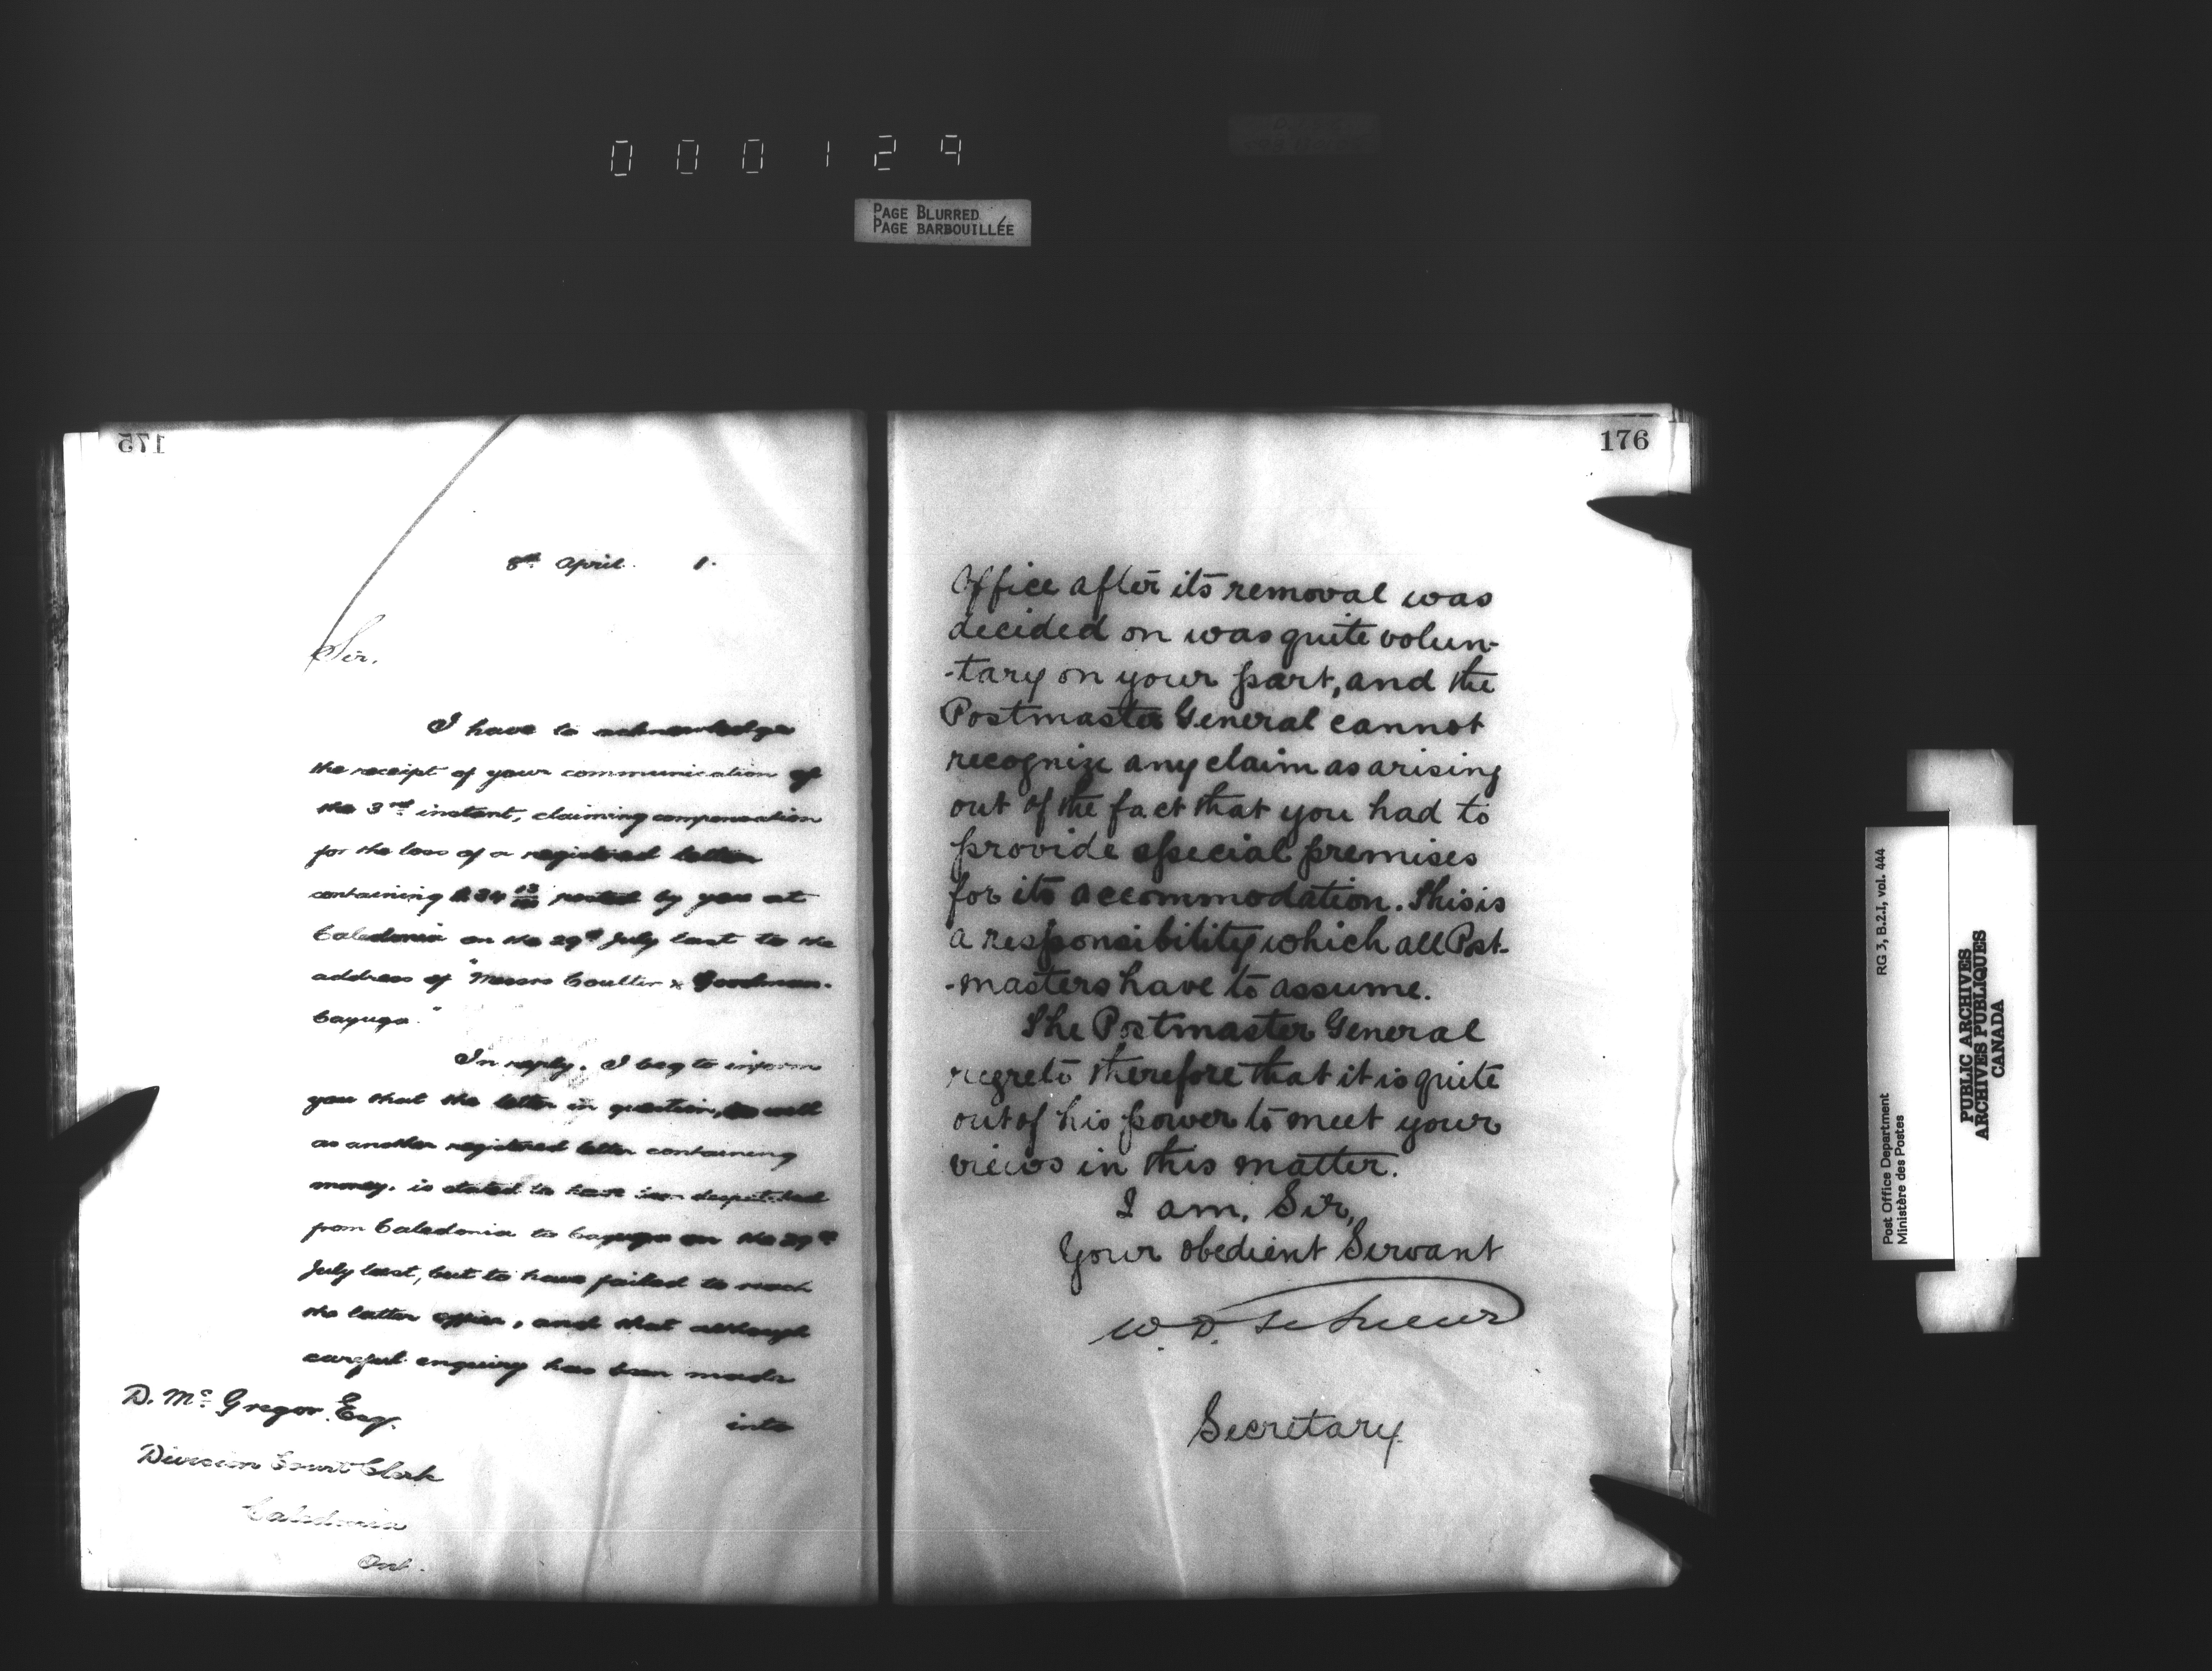 000129
PAGE BLURRED
PAGE BARBOUILLÉE
175
8th April. 1.
Sir.
I have to acknowledge
the receipt of your communication of
the 3rd instant, claiming compensation
for the loss of a registered letter
containing $34 13/100 posted by you at
Caledonia on the 29th July last to the
address of "Messrs Coulter & Goodman.
Cayuga."
In reply. I beg to inform
you that the letter in question, as well
as another registered letter containing
money. is stated to have been despatched
from Caledonia to Cayuga on the 29th
July last, but to have failed to reach
the latter office, and that although
careful enquiry has been made
into
D. Mc Gregor Esq.
Division Court Clerk
Caledonia
Ont.
176
Office after its removal was
decided on was quite volun-
-tary on your part, and the
Postmaster General cannot
recognize any claim as arising
out of the fact that you had to
provide special premises
for its accommodation. This is
a responsibility which all Post-
-masters have to assume.
The Postmaster General
regrets therefore that it is quite
out of his power to meet your
views in this matter.
I am, Sir,
Your obedient Servant
W. D. LeSueur
Secretary
Post Office Department RG 3, B.2.1, vol. 444
Ministère des Postes
PUBLIC ARCHIVES
ARCHIVES PUBLIQUES
CANADA